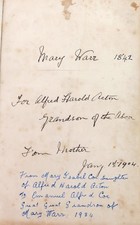 Mary Warr 1842
For Alfred Harold Acton
Grandson of the Above
From Mother
Jany 1st 1904
From Mary Isabel Cox daughter
of Alfred Harold Acton
to Emanuel Alfred Cox
Great Great Grandson of
Mary Warr. 1936